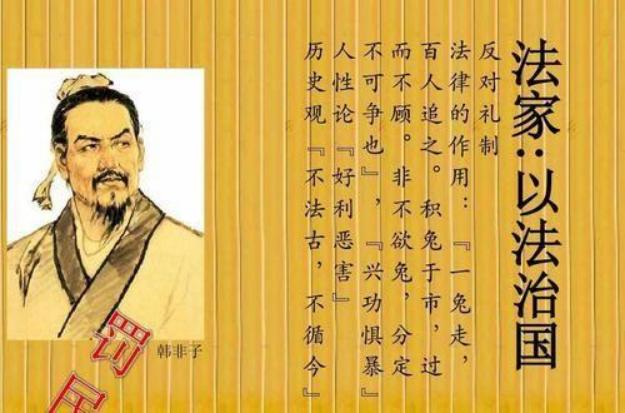 法家:以法治国
反对礼制
法律的作用:『一兔走,
百人追之。积兔于市,过
而不顾。非不欲兔,分定
不可争也』,『兴功惧暴』
人性论『好利恶害』
历史观『不法古,不循今』
韩非子
罚